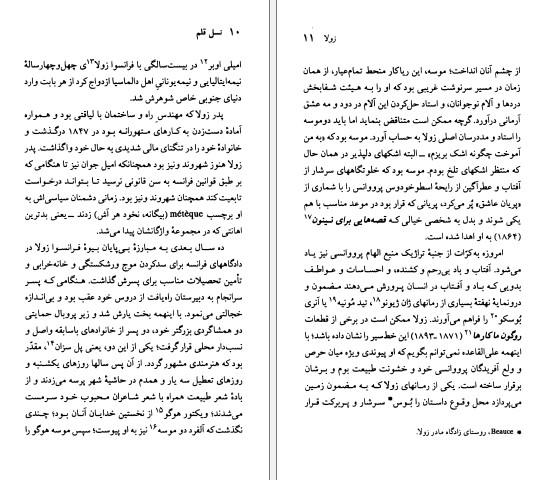 ۱۰ نسل قلم
امیلی اوبر۱۲ در بیست‌سالگی با فرانسوا زولا۱۳ی چهل‌وچهارسالهٔ
نیمه‌ایتالیایی و نیمه‌یونانی اهل دالماسیا ازدواج کرد از هر بابت وارد
دنیای جنوبی خاص شوهرش شد.
پدر زولا که مهندس راه و ساختمان با لیاقتی بود و همواره
آمادهٔ دست‌زدن به کارهای متهورانه بود در ۱۸۴۷ درگذشت و
خانوادهٔ خود را در تنگنای مالی شدیدی به حال خود واگذاشت. پدر
زولا هنوز شهروند ونیز بود همچنانکه امیل جوان نیز تا هنگامی که
بر طبق قوانین فرانسه به سن قانونی نرسید تا بتواند درخواست
تابعیت کند همچنان شهروند ونیز بود. زمانی دشمنان سیاسی‌اش به
او برچسب métèque (بیگانه، نخود هر آش) زدند ــ یعنی بدترین
اهانتی که در مجموعهٔ واژگانشان پیدا می‌شد.
ده سال بعدی به مبارزهٔ بی‌پایان بیوهٔ فرانسوا زولا در
دادگاههای فرانسه برای سدکردن موج ورشکستگی و خانه‌خرابی و
تأمین تحصیلات مناسب برای پسرش گذشت. هنگامی که پسر
سرانجام به دبیرستان راه‌یافت از دروس خود عقب بود و بی‌اندازه
خجالتی می‌نمود. با اینهمه بخت یارش شد و زیر پروبال حمایتی
دو همشاگردی بزرگتر خود، دو پسر از خانواده‌های باسابقه واصل و
نسب‌دار محلی قرار گرفت؛ یکی از این دو، یعنی پل سزان۱۴، مقدّر
بود که هنرمندی مشهور گردد. از آن پس سالها روزهای یکشنبه و
روزهای تعطیل سه یار و همدم در حاشیهٔ شهر پرسه می‌زدند و از
بادهٔ شعر طبیعت همراه با شعر شاعران محبوب خود سرمست
می‌شدند؛ ویکتور هوگو۱۵ از نخستین خدایان آنان بود؛ چندی
نگذشت که آلفرد دو موسه۱۶ نیز به او پیوست؛ سپس موسه هوگو را
زولا ۱۱
از چشم آنان انداخت؛ موسه، این ریاکار منحط تمام‌عیار، از همان
زمان در مسیر سرنوشت غریبی بود که او را به هیئت شفابخش
دردها و آلام نوجوانان، و استاد حل‌کردن این آلام در دود و مه عشق
آرمانی درآورد. گرچه ممکن است متناقض بنماید اما باید دوموسه
را استاد و مددرسان اصلی زولا به حساب آورد. موسه بود که «به من
آموخت چگونه اشک بریزم» ــ البته اشکهای دلپذیر در همان حال
که منتظر اشکهای تلخ بودم. موسه بود که خلوتگاههای سرشار از
آفتاب و عطرآگین از رایحهٔ اسطوخودوس پرووانس را با شماری از
«پریان عاشق» پُر می‌کرد، پریانی که قرار بود در موعد مناسب با هم
یکی شوند و بدل به شخصی خیالی که قصه‌هایی برای نینون۱۷
(۱۸۶۴) به او اهدا شده است.
امروزه به‌کرّات از جنبهٔ تراژیک منبع الهام پرووانسی نیز یاد
می‌شود. آفتاب و باد بی‌رحم و کشنده، و احساسات و عواطف
بدویی که باد و آفتاب در انسان پرورش می‌دهند مضمون و
درونمایهٔ نهفتهٔ بسیاری از رمانهای ژان ژیونو۱۸، تید مُونیه۱۹ یا آنری
بُوسکو۲۰ را فراهم می‌آورند. زولا ممکن است در برخی از قطعات
روگون ماکارها۲۱ (۱۸۷۱-۱۸۹۳) این خط‌سیر را نشان داده باشد؛ با
اینهمه علی‌القاعده نمی‌توانم بگویم که او پیوندی ویژه میان حرص
و ولع آفریدگان پرووانسی خود و خشونت طبیعت بوم و برشان
برقرار ساخته است. یکی از رمانهای زولا که به مضمون زمین
می‌پردازد محل وقوع داستان را بُوس* سرشار و پربرکت قرار
* Beauce، روستای زادگاه مادر زولا.